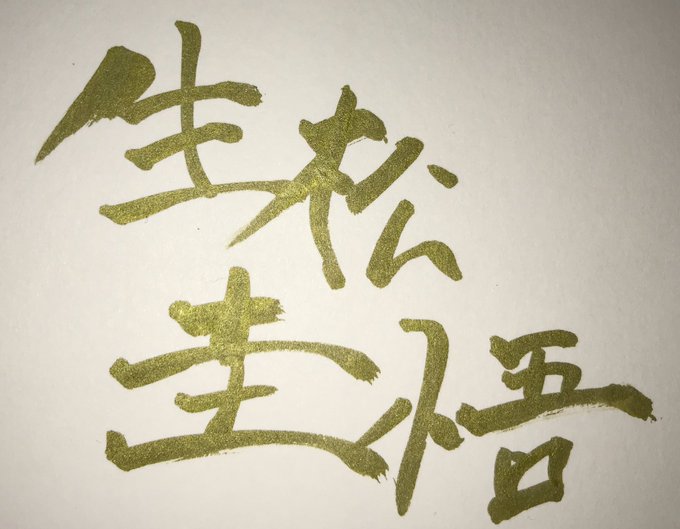 生松
圭悟